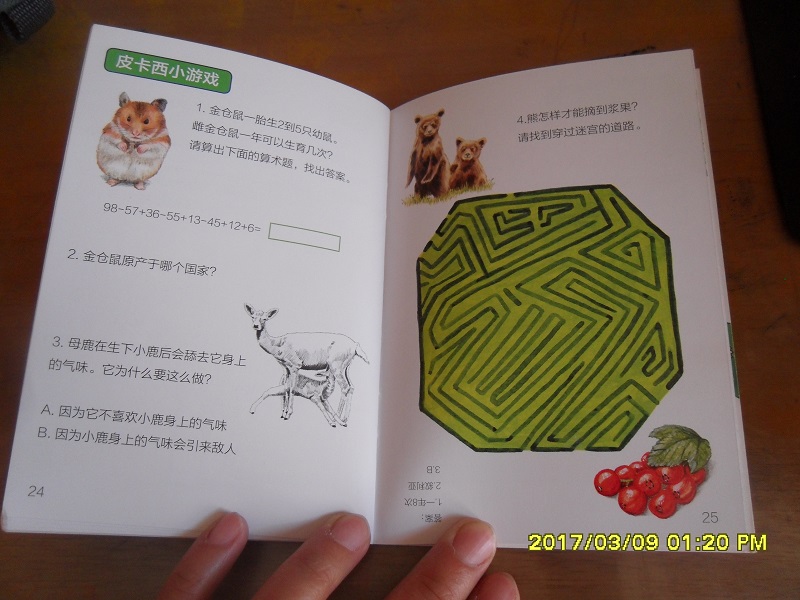 皮卡西小游戏
1. 金仓鼠一胎生2到5只幼鼠。
雌金仓鼠一年可以生育几次？
请算出下面的算术题，找出答案。
98-57+36-55+13-45+12+6=
2. 金仓鼠原产于哪个国家？
3. 母鹿在生下小鹿后会舔去它身上
的气味。它为什么要这么做？
A. 因为它不喜欢小鹿身上的气味
B. 因为小鹿身上的气味会引来敌人
24
4.熊怎样才能摘到浆果？
请找到穿过迷宫的道路。
答案：
1.一年8次
2.叙利亚
3.B
25
2017/03/09 01:20 PM